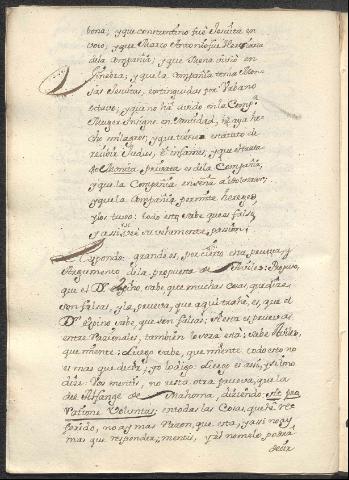 bona; y que constantino fué Jesuita en
voto; y que Marco Antonio fue
de la Compañía; y que vivió en
Ginebra; y que la Compañía tenia Mon-
jas Jesuitas, extinguidas por Urbano
octavo; y que no ha avido en la Comp.ª
Muger insigne en Santidad, ni aya he-
cho milagros; y que tiene estatuto de
recibir Judios, è infames; y que
de Monita privata es de la Compañia,
y que la Compañia enseña
y que la Compañia permite hereges,
y los tuvo: todo esto sabe que es falso,
y assi esto es solamente passion.
Respondo: grande es, por cierto esta prueva, y
Argumento de la propuesta de
que el D.r Espino sabe, que muchas cosas, que dize,
son falsas, y la prueva, que aqui trahe, es, que el
D.r Espino sabe, que son falsas: si esta es prueva
entre Racionales, tambien lo será esta: sabe
que miente: Luego sabe, que miente todo esto no
es mas que decir; yo lo digo: Luego es assi, y si uno
dize Vos mentis, no resta otra prueva, que la
del Alfange de Mahoma, diziendo: sit pro
Ratione Voluntas, en todas las cosas, que hè re-
ferido, no ay mas Razon, que esta; y assi no ay
mas que responder; mentis, y el no me lo podrá
decir